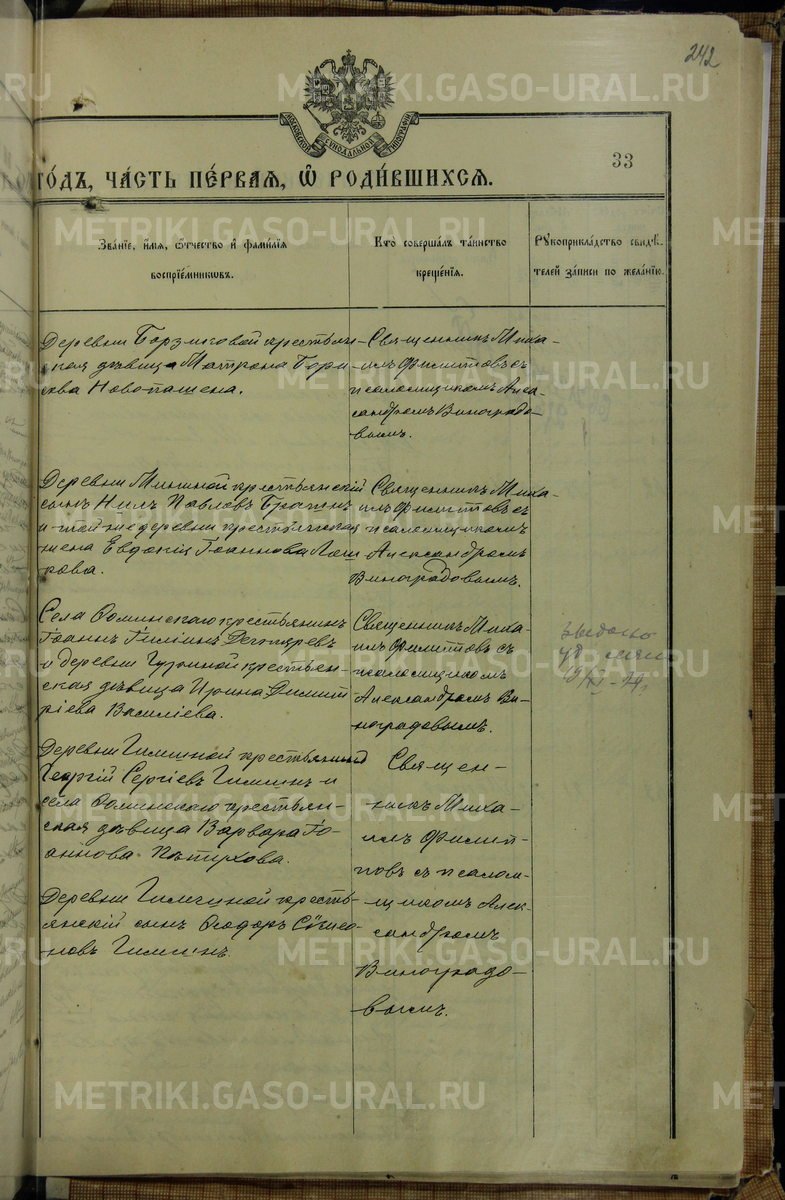 242
МОСКОВСКОЙ СѴНОДАЛЬНОЙ ТИПОГРАФІИ
33
ГО́ДЪ, ЧА́СТЬ ПЕ́РВАЯ, Ѿ РОДИ́ВШИХСЯ.
Зва́нїе, и҆́мя, ѻ҆́тчество и҆ фами́лїя
воспрїе́мниковъ.
Кто̀ соверша́лъ та́инство
креще́нїя.
Рꙋкоприкла́дство свидѣ́-
телей за́писи по жела́нїю.
Деревни Борзиковой крестьян-
ская дѣвица Матрона Бори-
сова Новопашена.
Священникъ Миха-
илъ Филипповъ съ
псаломщикомъ Алек-
сандромъ Виноградо-
вымъ.
Деревни Мининой крестьянскій
сынъ Нилъ Павловъ
и той же деревни крестьянская
жена Евдокія Іоаннова
кова.
Священникъ Миха-
илъ Филипповъ съ
псаломщикомъ
Александромъ
Виноградовымъ.
Села Фоминскаго крестьянинъ
Іоаннъ Дегтяревъ
и деревни крестьян-
ская дѣвица Ирина Димит-
ріева Василіева.
Священникъ Миха-
илъ Филипповъ съ
псаломщикомъ
Александромъ Ви-
ноградовымъ.
Деревни крестьянинъ
Георгій Сергіевъ и
села Фоминскаго крестьян-
ская дѣвица Варвара Іо-
аннова Пѣтухова.
Священ-
никъ Миха-
илъ Филип-
повъ съ псалом-
щикомъ Алек-
сандромъ
Виноградо-
вымъ.
Деревни кресть-
янскій сынъ Ѳеодоръ Сѵмео-
новъ
METRIKI.GASO-URAL.RU